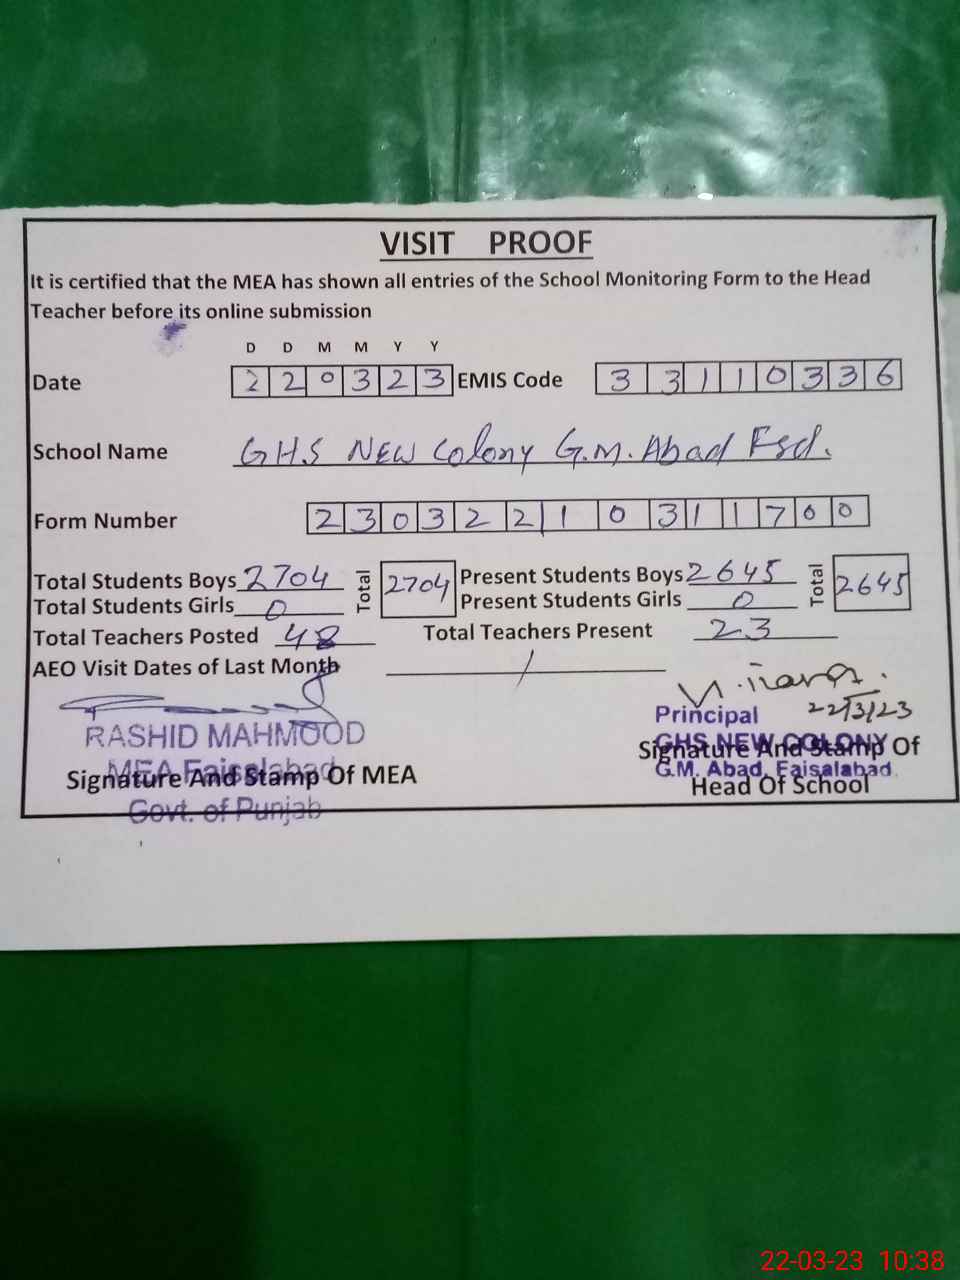 VISIT PROOF
It is certified that the MEA has shown all entries of the School Monitoring Form to the Head
Teacher before its online submission
D D M M Y Y
Date 2 2 0 3 2 3 EMIS Code 3 3 1 1 0 3 3 6
School Name GHS New Colony G.M. Abad Fsd.
Form Number 2 3 0 3 2 2 1 0 3 1 1 7 0 0
Total Students Boys 2704 Total 2704 Present Students Boys 2645 Total 2645
Total Students Girls 0 Present Students Girls 0
Total Teachers Posted 48 Total Teachers Present 23
AEO Visit Dates of Last Month /
22/3/23
RASHID MAHMOOD
MEA Faisalabad
Govt. of Punjab
Signature And Stamp Of MEA
Principal
GHS NEW COLONY
G.M. Abad, Faisalabad.
Signature And Stamp Of
Head Of School
22-03-23 10:38